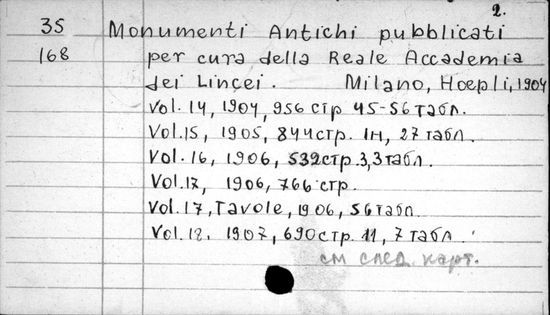 2.
35 Monumenti Antichi pubblicati
168 per cura della Reale Accademia
dei Lincei. Milano, Hoepli, 1904
Vol. 14, 1904, 956 стр 45-56 табл.
Vol. 15, 1905, 844 стр. 1н, 27 табл.
Vol. 16, 1906, 532 стр. 3,3 табл.
Vol. 17, 1906, 766 стр.
Vol. 17, Tavole, 1906, 56 табл.
Vol. 18. 1907, 690 стр. 11, 7 табл.
см след. карт.